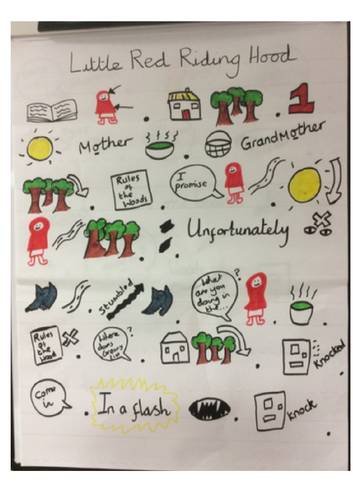 Little Red Riding Hood
1
Mother Grandmother
Rules of the woods
I promise
Unfortunately
Stumbled
What are you doing in the...
?
Rules of the woods
Where does Granny live
?
Knocked
Come in
In a flash
Knock